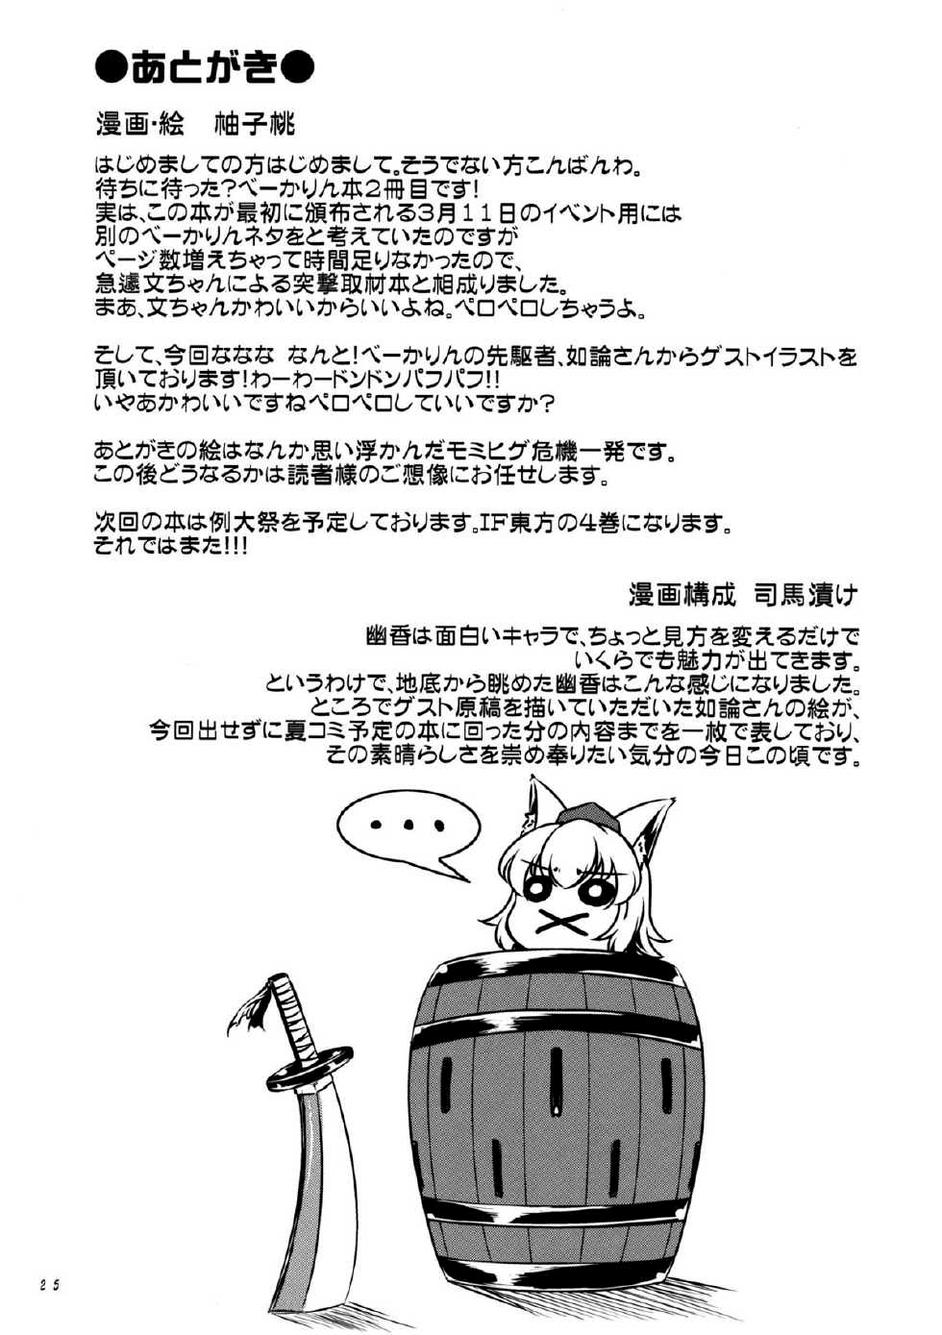 ●あとがき●
漫画・絵　柚子桃
はじめましての方はじめまして。そうでない方こんばんわ。
待ちに待った？べーかりん本２冊目です！
実は、この本が最初に頒布される３月１１日のイベント用には
別のべーかりんネタをと考えていたのですが
ページ数増えちゃって時間足りなかったので、
急遽文ちゃんによる突撃取材本と相成りました。
まあ、文ちゃんかわいいからいいよね。ペロペロしちゃうよ。
そして、今回ななな なんと！べーかりんの先駆者、如論さんからゲストイラストを
頂いております！わーわードンドンパフパフ！！
いやあかわいいですねペロペロしていいですか？
あとがきの絵はなんか思い浮かんだモミヒゲ危機一発です。
この後どうなるかは読者様のご想像にお任せします。
次回の本は例大祭を予定しております。IF東方の４巻になります。
それではまた！！！
漫画構成　司馬漬け
幽香は面白いキャラで、ちょっと見方を変えるだけで
いくらでも魅力が出てきます。
というわけで、地底から眺めた幽香はこんな感じになりました。
ところでゲスト原稿を描いていただいた如論さんの絵が、
今回出せずに夏コミ予定の本に回った分の内容までを一枚で表しており、
その素晴らしさを崇め奉りたい気分の今日この頃です。
・・・
２５